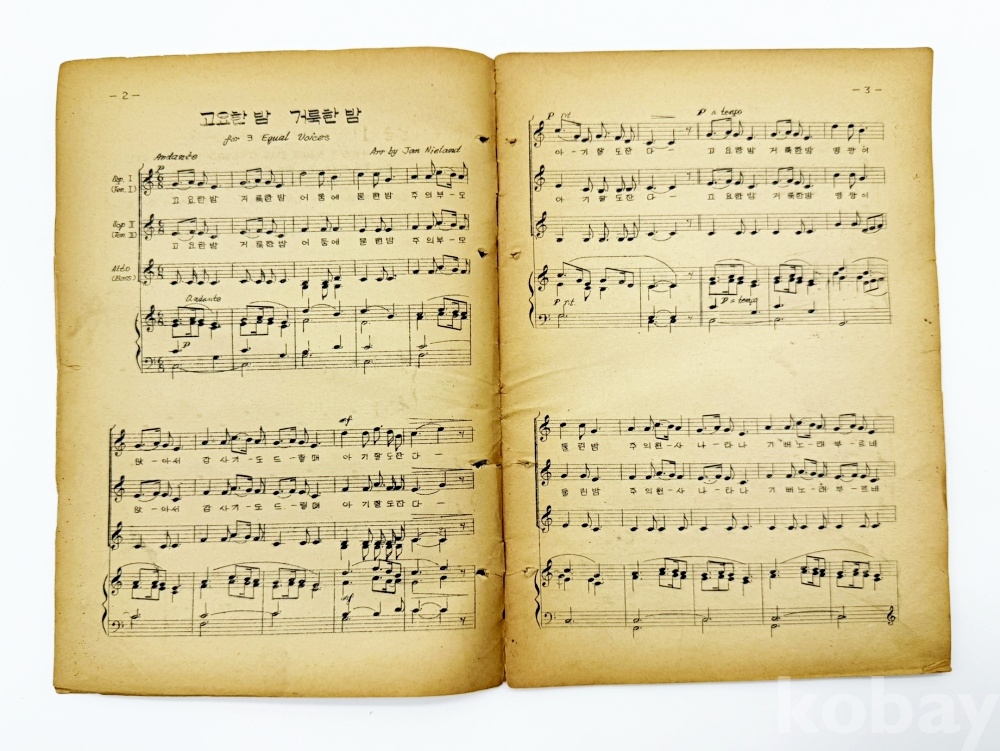 - 2 -
고요한 밤 거룩한 밤
for 3 Equal Voices
Andante Arr by Jan Nieland
p
Sop. I
(Ten. I)
고요한밤 거룩한밤 어둠에 묻힌밤 주의부-모
Sop II
(Ten. II)
고요한밤 거룩한밤 어둠에 묻힌밤 주의부-모
Alto
(Bass)
Andante
p
mf
앉-아서 감사기-도드-릴때 아기잘도잔다-
앉-아서 감사기-도드-릴때 아기잘도잔다-
mf
- 3 -
P rit. P a tempo
아-기잘도잔다- 고요한밤 거룩한밤 영광이
아-기잘도잔다- 고요한밤 거룩한밤 영광이
P rit. P a tempo
둘린밤 주의천-사 나-타나 기뻐노-래부-르네
둘린밤 주의천-사 나-타나 기뻐노-래부-르네
kobay